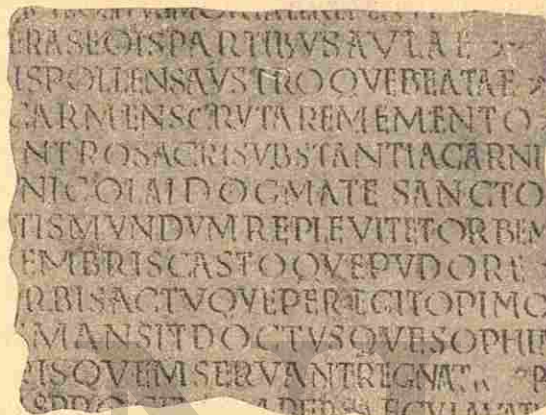 ERASEOISPARTIBVSAVLAE
ISPOLLENSAVSTROQVEBEATAE
CARMENSCRVTAREMEMENTO
NTROSACRISVBSTANTIACARNI
NICOLAIDOGMATE SANCTO
TISMVNDVMREPLEVITETORBEM
EMBRISCASTOQVEPVDORE
RBISACTVQVEPEREGITOPIMO
MANSITDOCTVSQVESOPHI
ISQVEMSERVANTREGNAT